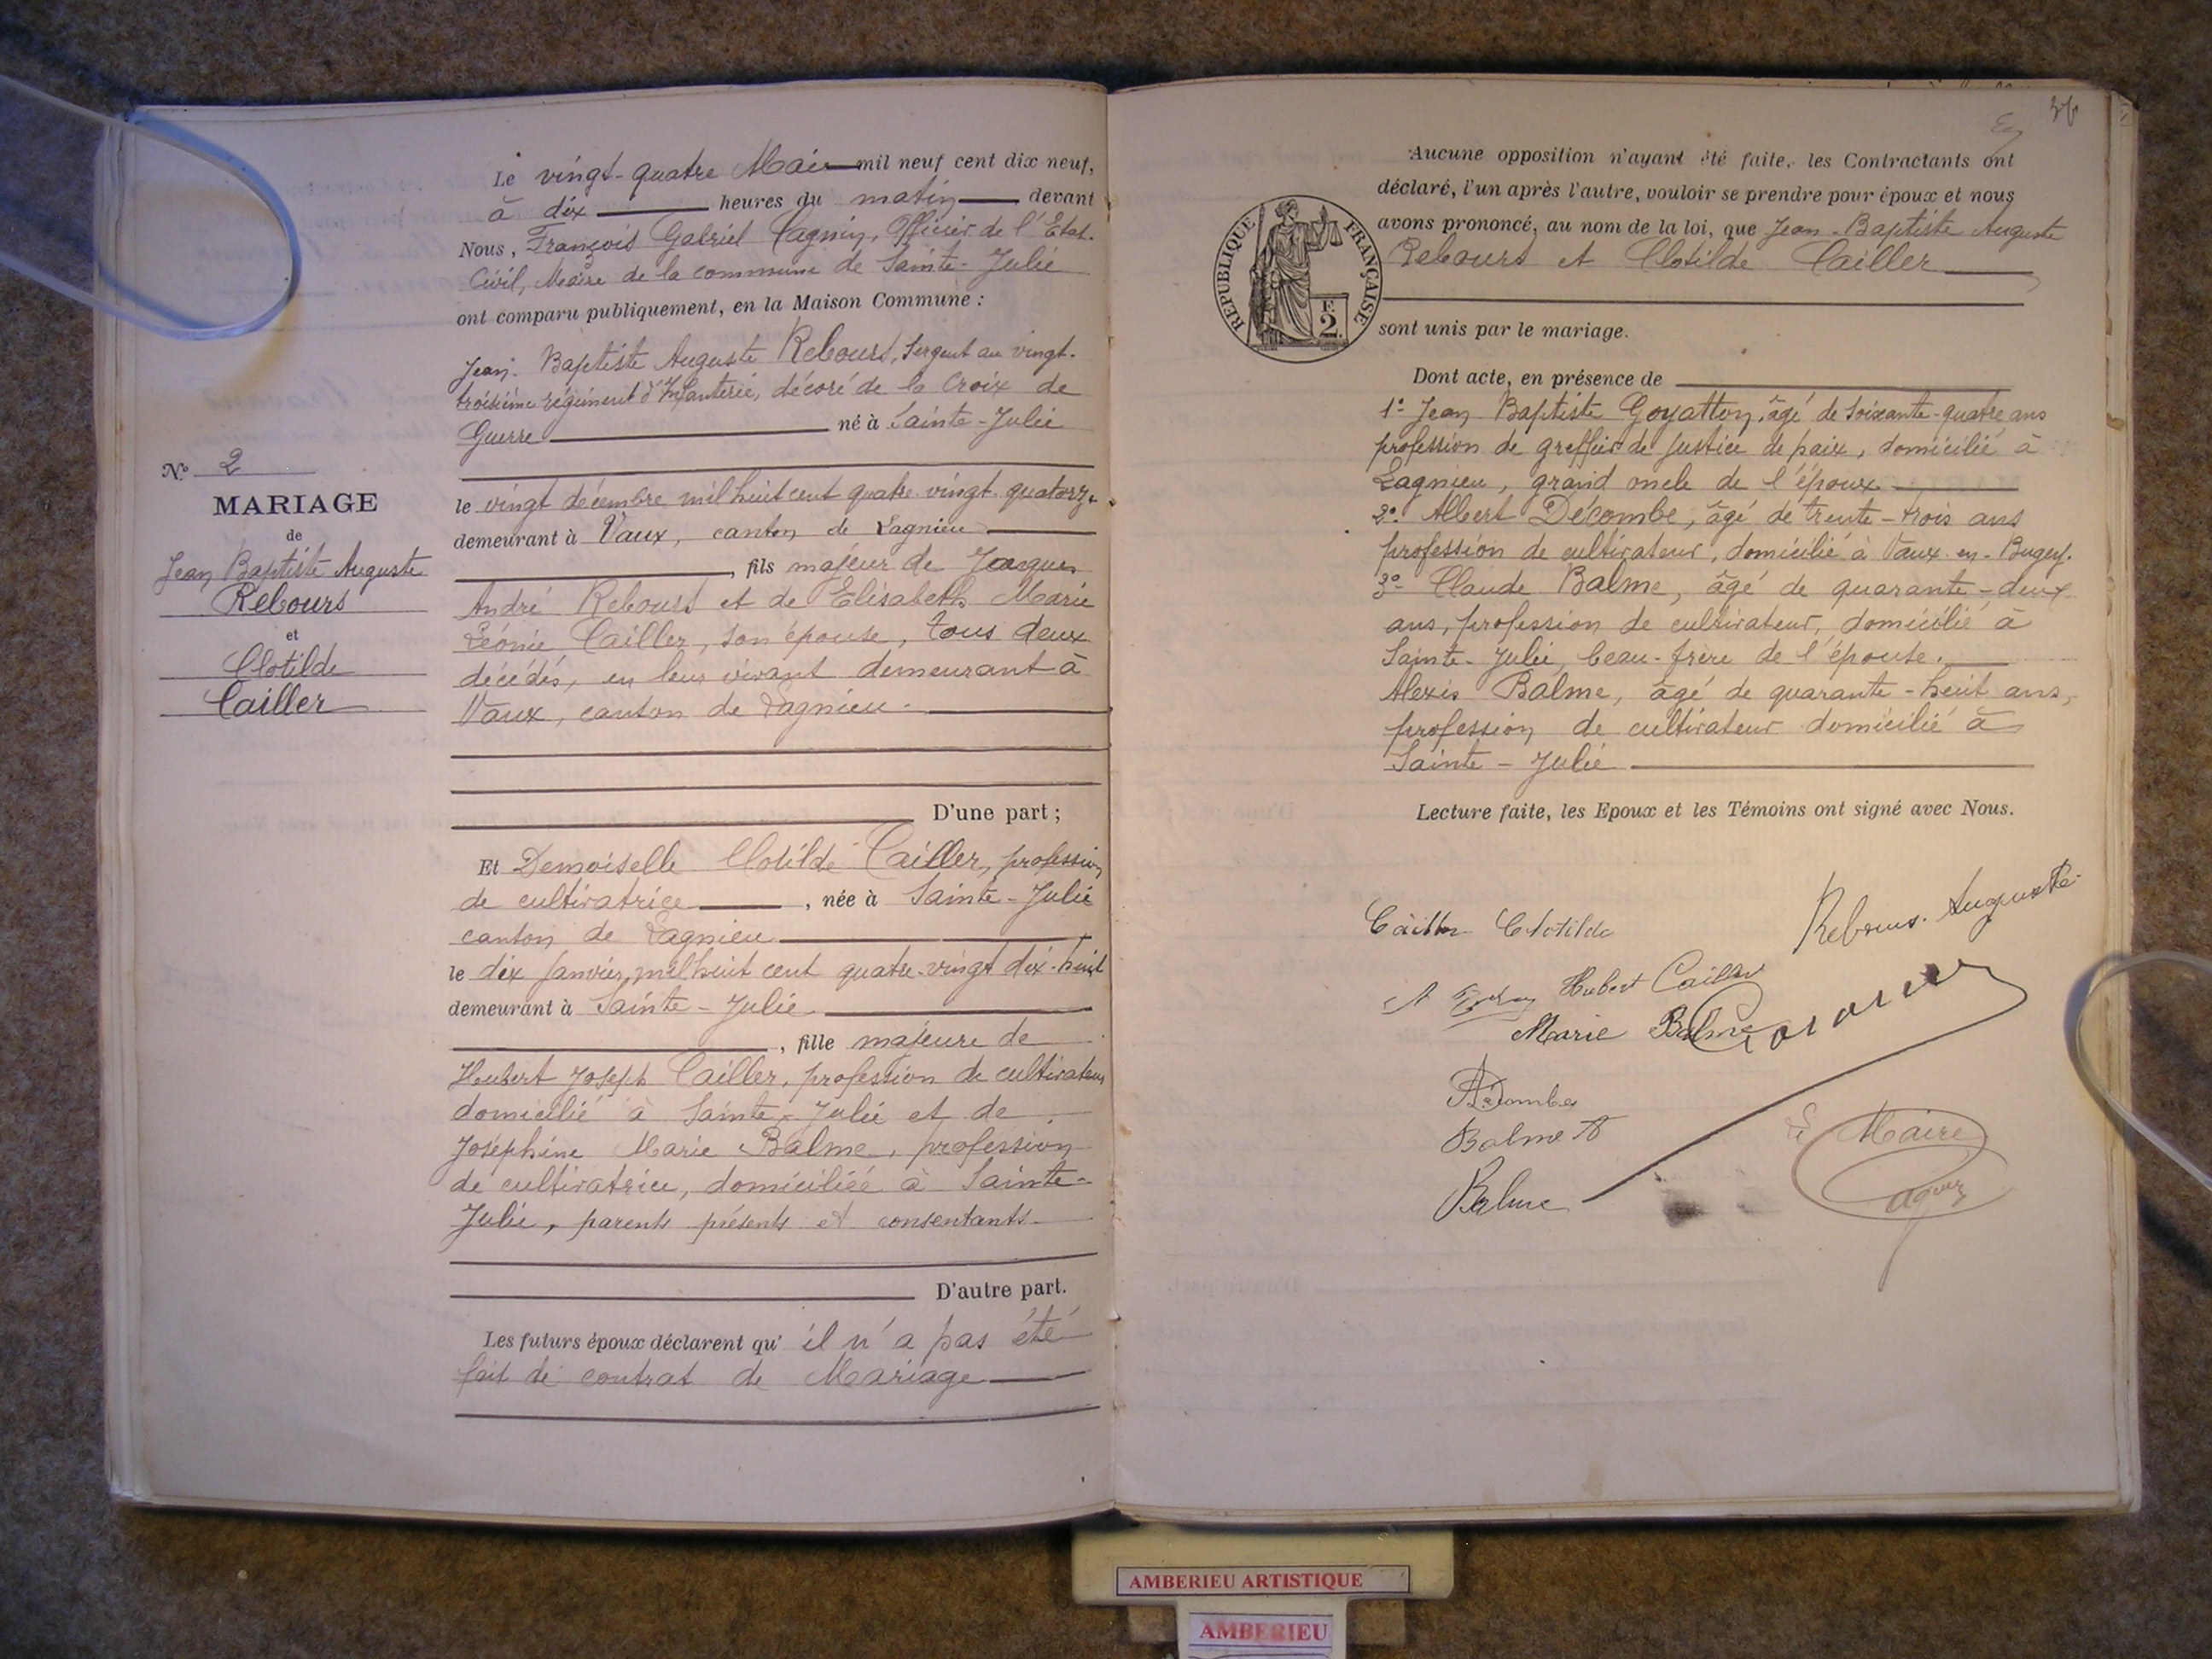 Le vingt-quatre Mai mil neuf cent dix neuf,
à dix heures du matin devant
Nous, François Gabriel Cagnin, Officier de l'Etat-
Civil, Maire de la commune de Sainte-Julie
ont comparu publiquement, en la Maison Commune :
Jean-Baptiste Auguste Rebours, Sergent au vingt-
troisième régiment d'Infanterie, décoré de la Croix de
Guerre né à Sainte-Julie
le vingt décembre mil huit cent quatre-vingt-quatorze
demeurant à Vaux, canton de Lagnieu
, fils majeur de Jacques
André Rebours et de Elisabeth Marie
Léonie Cailler, son épouse, tous deux
décédés, en leur vivant demeurant à
Vaux, canton de Lagnieu.
D'une part ;
Et Demoiselle Clotilde Cailler, profession
de cultivatrice , née à Sainte-Julie
canton de Lagnieu
le dix Janvier mil huit cent quatre-vingt dix-huit
demeurant à Sainte-Julie.
, fille majeure de
Hubert Joseph Cailler, profession de cultivateur
domicilié à Sainte-Julie et de
Joséphine Marie Balme, profession
de cultivatrice, domiciliée à Sainte-
Julie, parents présents et consentants.
D'autre part.
Les futurs époux déclarent qu'il n'a pas été
fait de contrat de Mariage
N° 2
MARIAGE
de
Jean Baptiste Auguste
Rebours
et
Clotilde
Cailler
36
Aucune opposition n'ayant été faite, les Contractants ont
déclaré, l'un après l'autre, vouloir se prendre pour époux et nous
avons prononcé, au nom de la loi, que Jean-Baptiste Auguste
Rebours et Clotilde Cailler
sont unis par le mariage.
REPUBLIQUE FRANÇAISE
F.
2.
Dont acte, en présence de
1° Jean Baptiste Goyatton, âgé de soixante-quatre ans
profession de greffier de justice de paix, domicilié à
Lagnieu, grand oncle de l'époux
2° Albert Décombe, âgé de trente-trois ans
profession de cultivateur, domicilié à Vaux-en-Bugey.
3° Claude Balme, âgé de quarante-deux
ans, profession de cultivateur, domicilié à
Sainte-Julie, beau-frère de l'épouse.
Alexis Balme, âgé de quarante-huit ans,
profession de cultivateur domicilié à
Sainte-Julie
Lecture faite, les Epoux et les Témoins ont signé avec Nous.
Cailler Clotilde
Rebours Auguste
Hubert Cailler
Marie Balme
Décombe
Balme A
Balme
Le Maire
Cagnin
AMBERIEU ARTISTIQUE
AMBERIEU